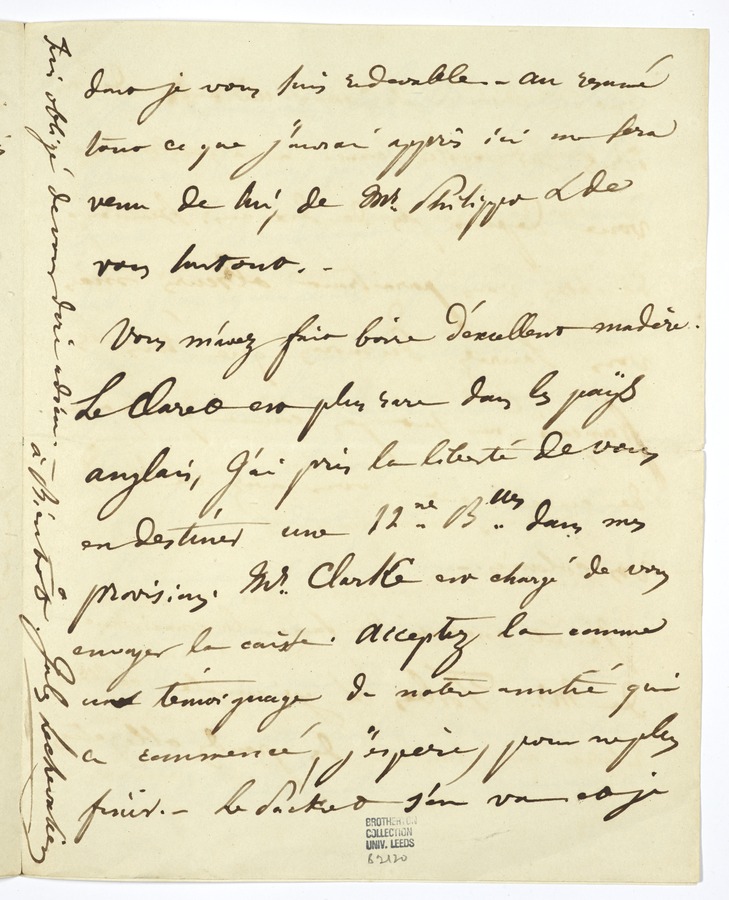 dont je vous suis redevable. - au resumé
tout ce que j'aurai appris ici me sera
venu de lui, de Mr. Philippe & de
vous surtout. -
Vous m'avez fait boire d'excellent madère.
Le Claret est plus rare dans les pays
anglais, J'ai pris la liberté de vous
en destiner une 12ne Blles dans mes
provisions. Mr. Clarke est chargé de vous
envoyer la caisse. Acceptez la comme
un témoignage de notre amitié qui
a commencé, j'espère, pour ne plus
finir. - Le Packet s'en va et je
suis obligé de vous dire adieu. -
à Bientôt. Jules Lechevalier
BROTHERTON
COLLECTION
UNIV. LEEDS